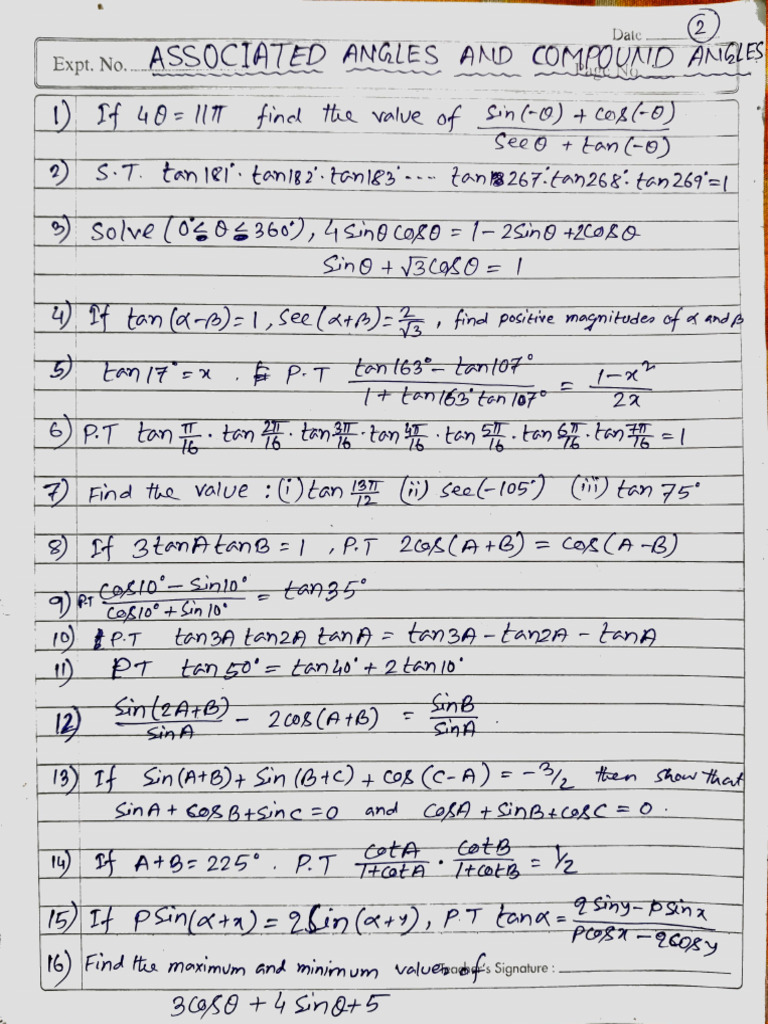 Date
2
Expt. No. ASSOCIATED ANGLES AND COMPOUND ANGLES
Page No.
1) If 4θ = 11π find the value of (sin(-θ) + cos(-θ))/(secθ + tan(-θ))
2) S.T. tan181°· tan182°· tan183° ---- tan267°· tan268°· tan269° = 1
3) Solve (0°≤ θ ≤ 360°), 4 sinθ cosθ = 1 - 2sinθ + 2cosθ
sinθ + √3 cosθ = 1
4) If tan(α-β) = 1, sec(α+β) = 2/√3, find positive magnitudes of α and β
5) tan17° = x . P.T (tan163° - tan107°)/(1 + tan163° tan107°) = (1-x²)/2x
6) P.T tan π/16 · tan 2π/16 · tan 3π/16 · tan 4π/16 · tan 5π/16 · tan 6π/16 · tan 7π/16 = 1
7) Find the value : (i) tan 13π/12 (ii) sec(-105°) (iii) tan 75°
8) If 3tanA tanB = 1 , P.T 2cos(A+B) = cos(A-B)
9) P.T (cos10° - sin10°)/(cos10° + sin10°) = tan35°
10) P.T tan3A tan2A tanA = tan3A - tan2A - tanA
11) PT tan50° = tan40° + 2 tan10°
12) sin(2A+B)/sinA - 2cos(A+B) = sinB/sinA .
13) If sin(A+B) + sin(B+C) + cos(C-A) = -3/2 then show that
sinA + cosB + sinC = 0 and cosA + sinB + cosC = 0 .
14) If A+B = 225° . P.T cotA/(1+cotA) · cotB/(1+cotB) = 1/2
15) If Psin(α+x) = qsin(α+y), P.T tanα = (q siny - p sinx)/(pcosx - qcosy)
16) Find the maximum and minimum values of
Teacher's Signature :
3cosθ + 4 sinθ + 5